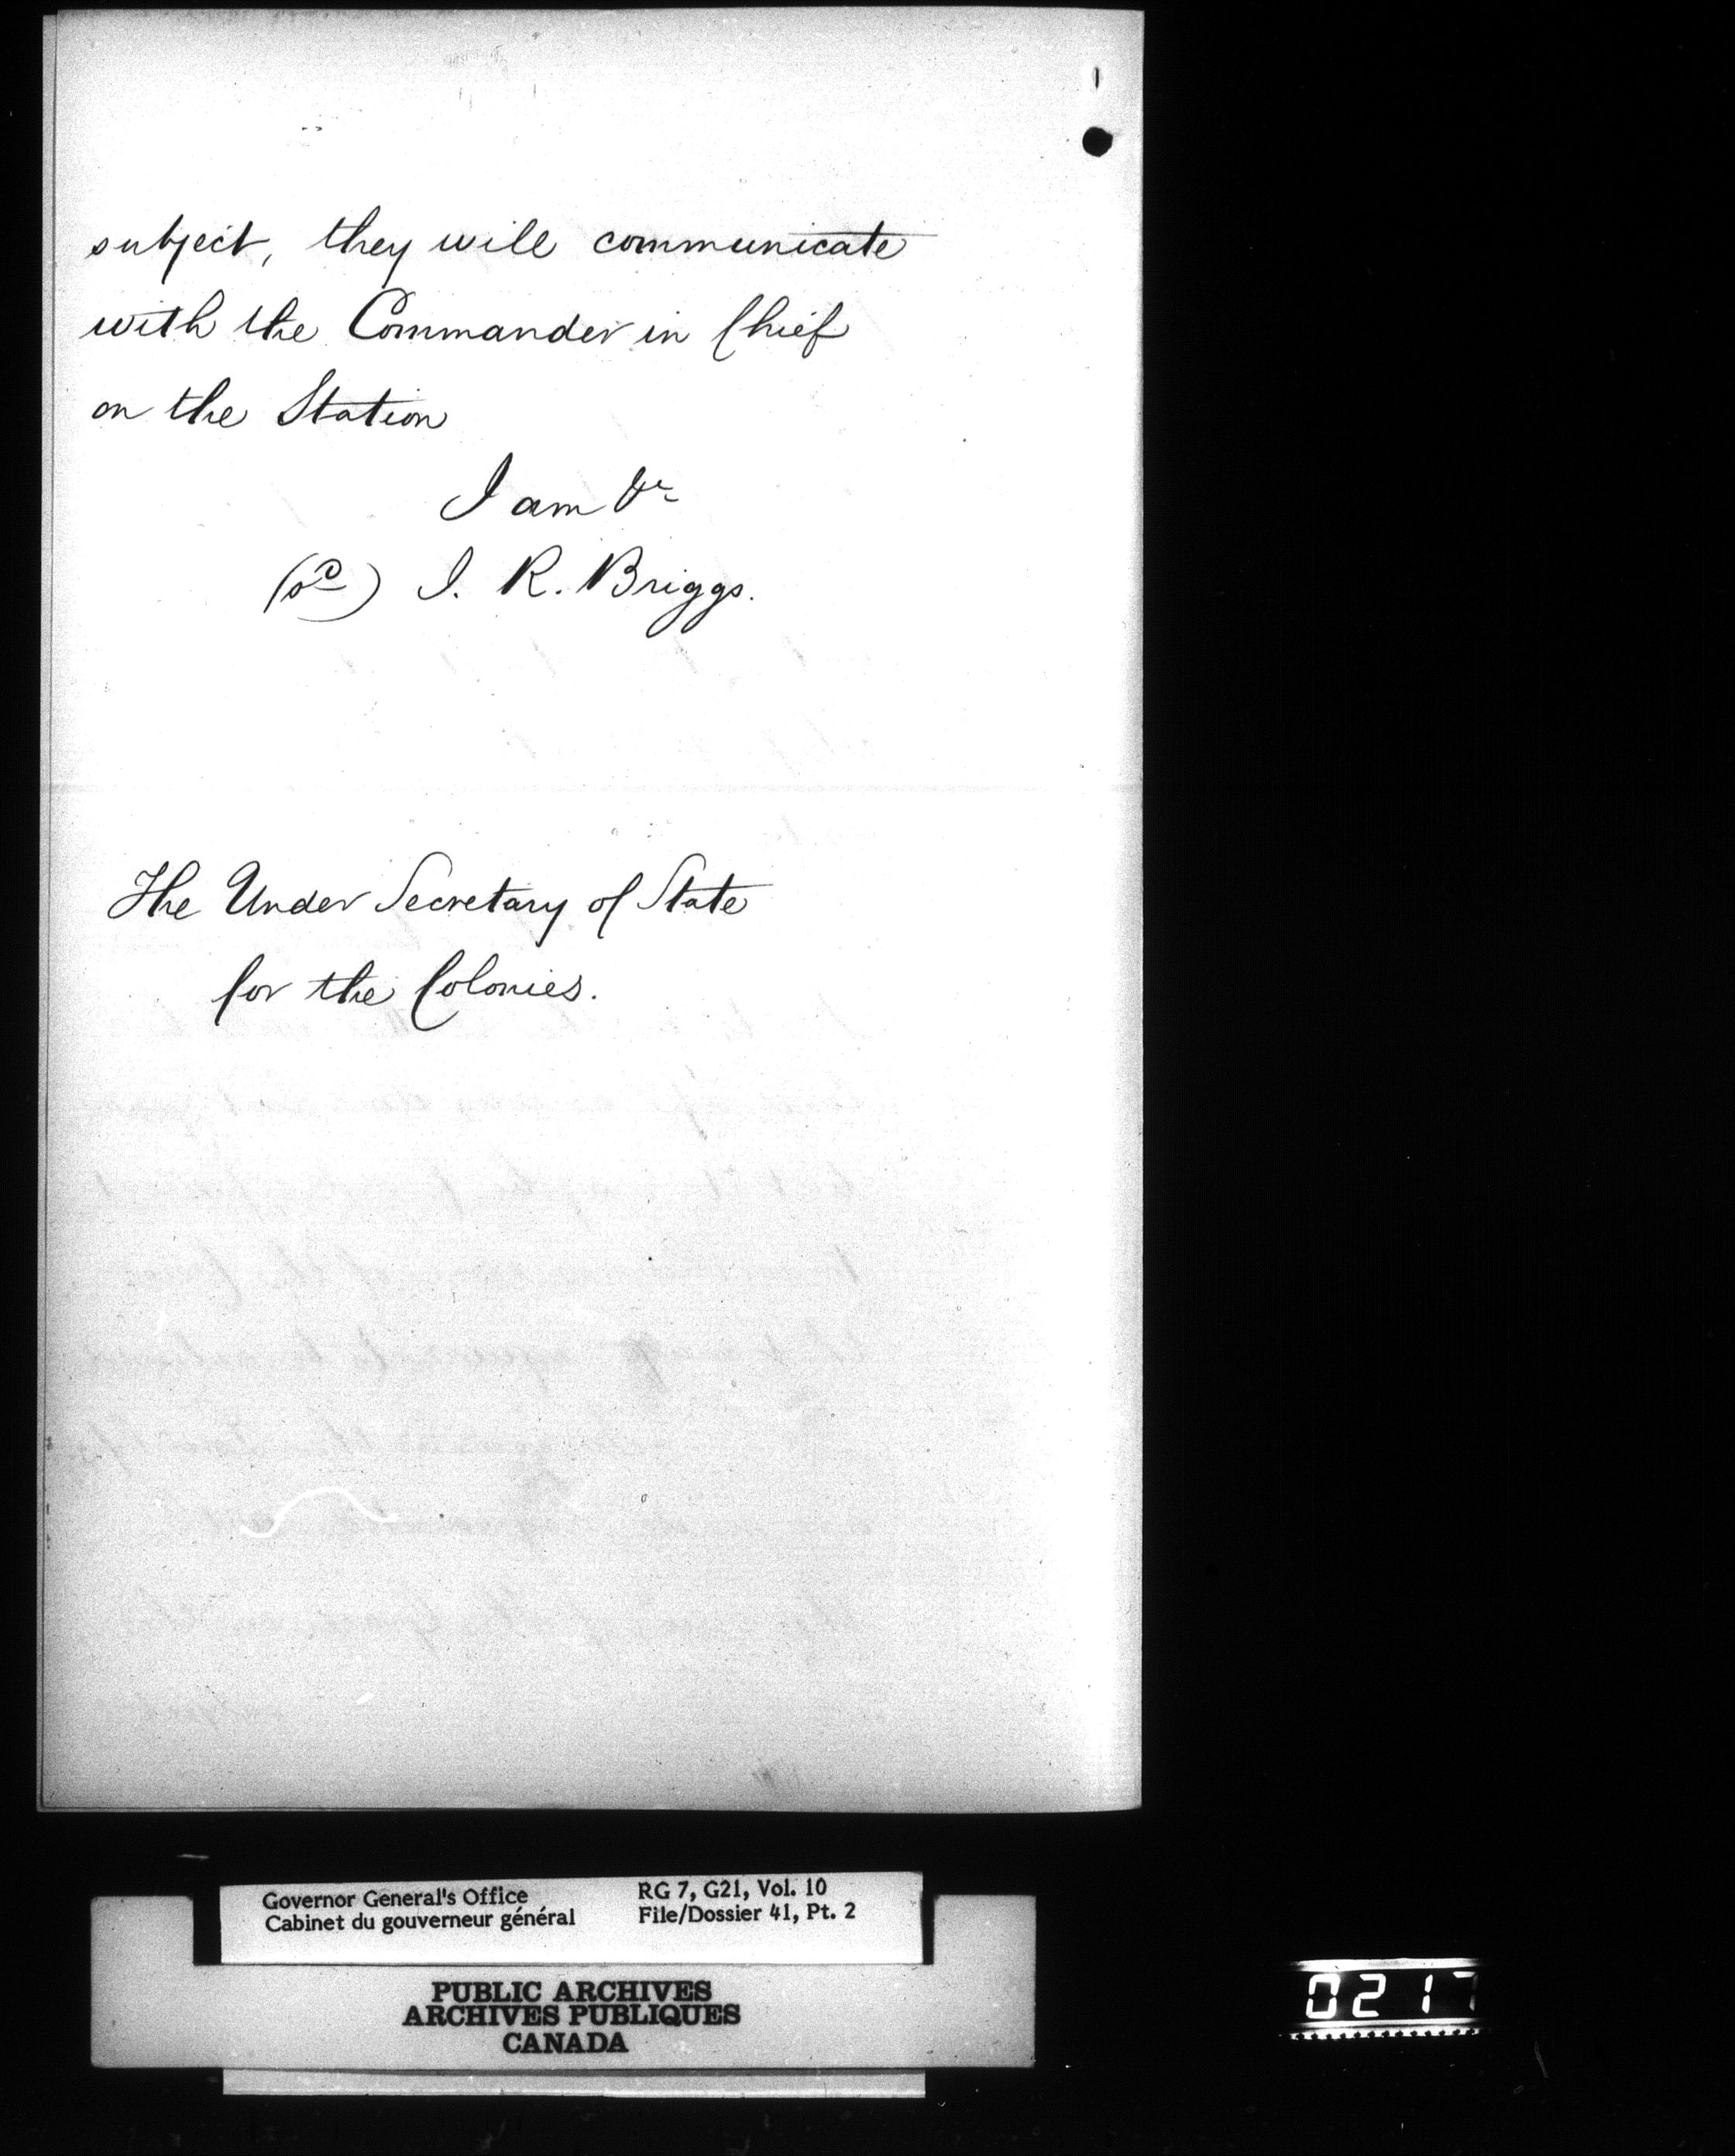 subject, they will communicate
with the Commander in Chief
on the Station
I am &c
(sd) J. R. Briggs.
The Under Secretary of State
for the Colonies.
Governor General's Office
Cabinet du gouverneur général
RG 7, G21, Vol. 10
File/Dossier 41, Pt. 2
PUBLIC ARCHIVES
ARCHIVES PUBLIQUES
CANADA
0217